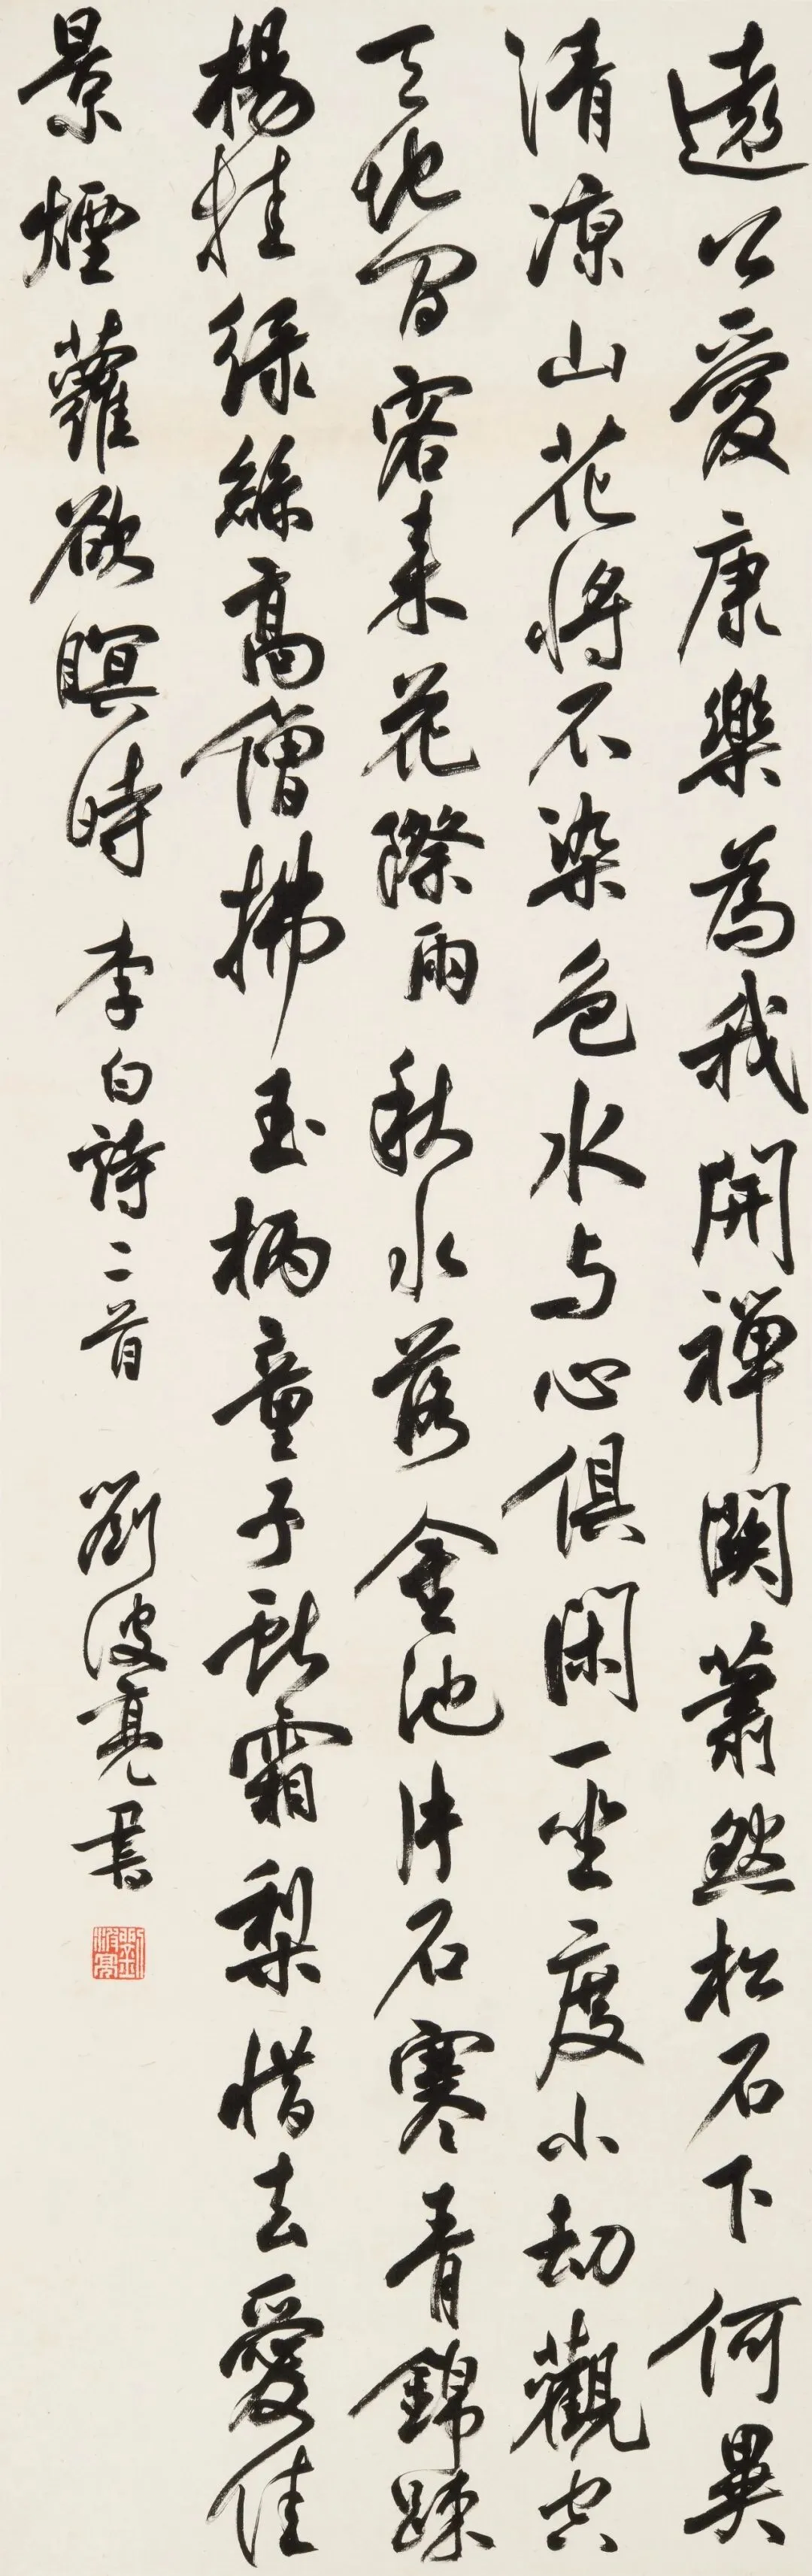 遠公愛康樂為我開禪關蕭然松石下何異
清涼山花將不染色水与心俱閑一坐度小劫觀空
天地間客來花際雨秋水落金池片石寒青錦疎
楊挂綠絲高僧拂玉柄童子獻霜梨惜去愛佳
景煙蘿欲暝時 李白詩二首 劉波亮書
劉波亮